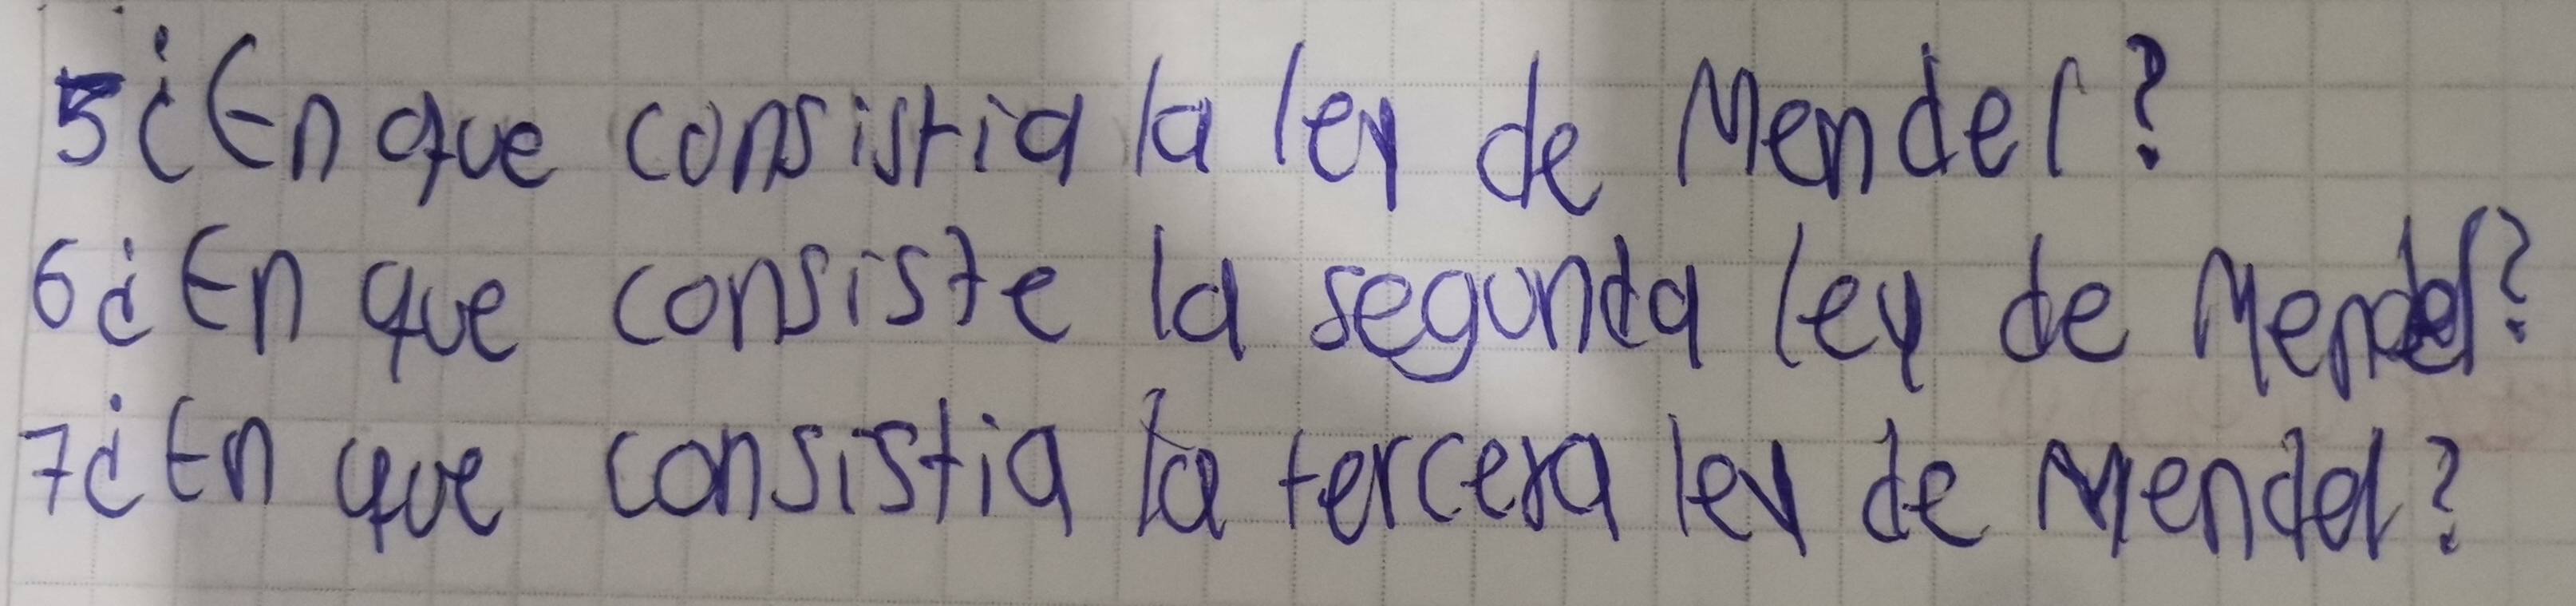 5¿En que consistia la ley de Mendel?
6¿En que consiste la segunda ley de Mendel?
7¿En que consistia la tercera ley de Mendel?